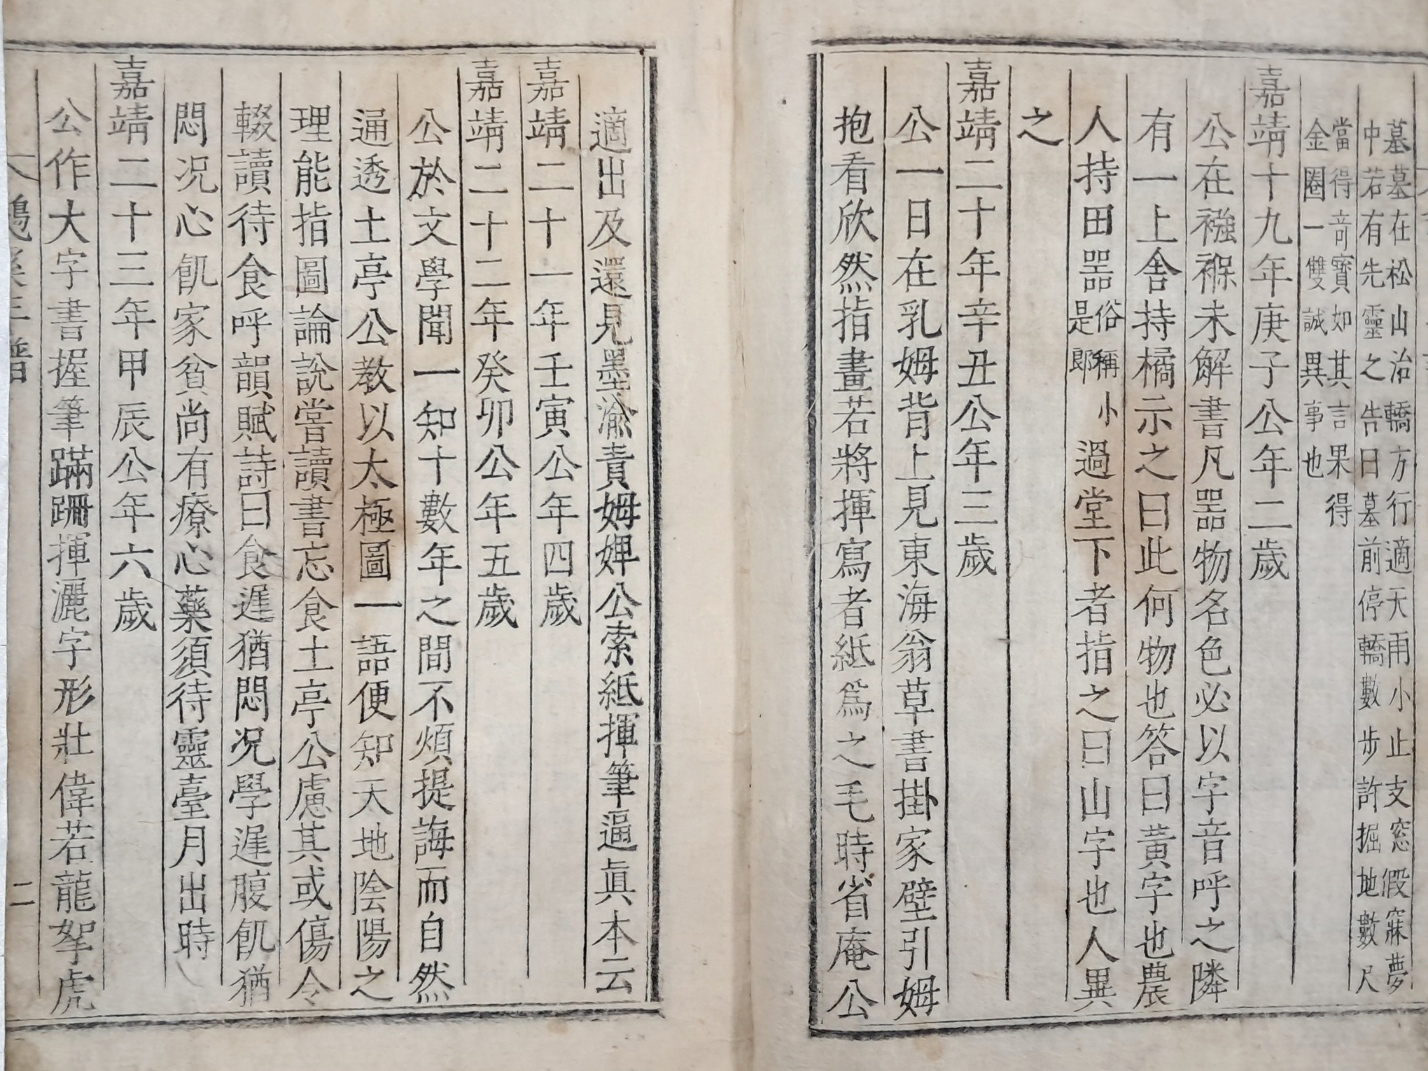 墓墓在松山治轎方行適天雨小止支窓假寐夢
中若有先靈之告曰墓前停轎數步許掘地數尺
當得奇寳如其言果得
金圈一雙誠異事也
嘉靖十九年庚子公年二歲
公在襁褓未解書凡器物名色必以字音呼之隣
有一上舍持橘示之曰此何物也答曰黃字也農
人持田器俗稱小是郞過堂下者指之曰山字也人異
之
嘉靖二十年辛丑公年三歲
公一日在乳姆背上見東海翁草書掛家壁引姆
抱看欣然指畫若將揮寫者紙爲之毛時省庵公
適出及還見墨渝責姆婢公索紙揮筆逼眞本云
嘉靖二十一年壬寅公年四歲
嘉靖二十二年癸卯公年五歲
公於文學聞一知十數年之間不煩提誨而自然
通透土亭公敎以太極圖一語便知天地陰陽之
理能指圖論說嘗讀書忘食土亭公慮其或傷令
輟讀待食呼韻賦詩曰食遲猶悶况學遲腹飢猶
悶况心飢家貧尚有療心藥須待靈臺月出時
嘉靖二十三年甲辰公年六歲
公作大字書握筆蹣跚揮灑字形壯偉若龍拏虎
二